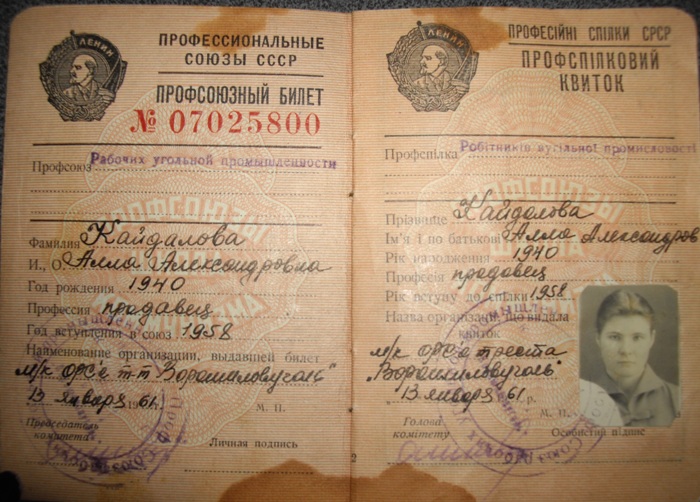 ЛЕНИН
ПРОФЕССИОНАЛЬНЫЕ
СОЮЗЫ СССР
ПРОФСОЮЗНЫЙ БИЛЕТ
№ 07025800
Профсоюз Рабочих угольной промышленности
Фамилия Кайдалова
И., О. Алла Александровна
Год рождения 1940
Профессия продавец
Год вступления в союз 1958
Наименование организации, выдавшей билет
м/к ОРСа т-т Ворошиловуголь"
13 января 1961 г.
М. П.
Председатель
комитета
Личная подпись
ЛЕНИН
ПРОФЕСІЙНІ СПІЛКИ СРСР
ПРОФСПІЛКОВИЙ
КВИТОК
Профспілка Робітників вугільної промисловості
Прізвище Кайдалова
Ім'я і по батькові Алла Александров
Рік народження 1940
Професія продавец
Рік вступу до спілки 1958
Назва організації, що видала
квиток
м/к ОРСа треста
"Ворошиловуголь"
"13 января 61 р.
М. П.
Голова
комітету
Особистий підпис
2